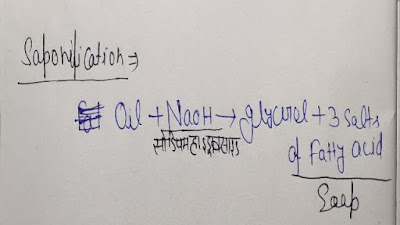 Saponification ⇒
Oil + NaoH → glycerol + 3 Salts
सोडियम हाइड्रोक्साइड
of Fatty acid
Soap